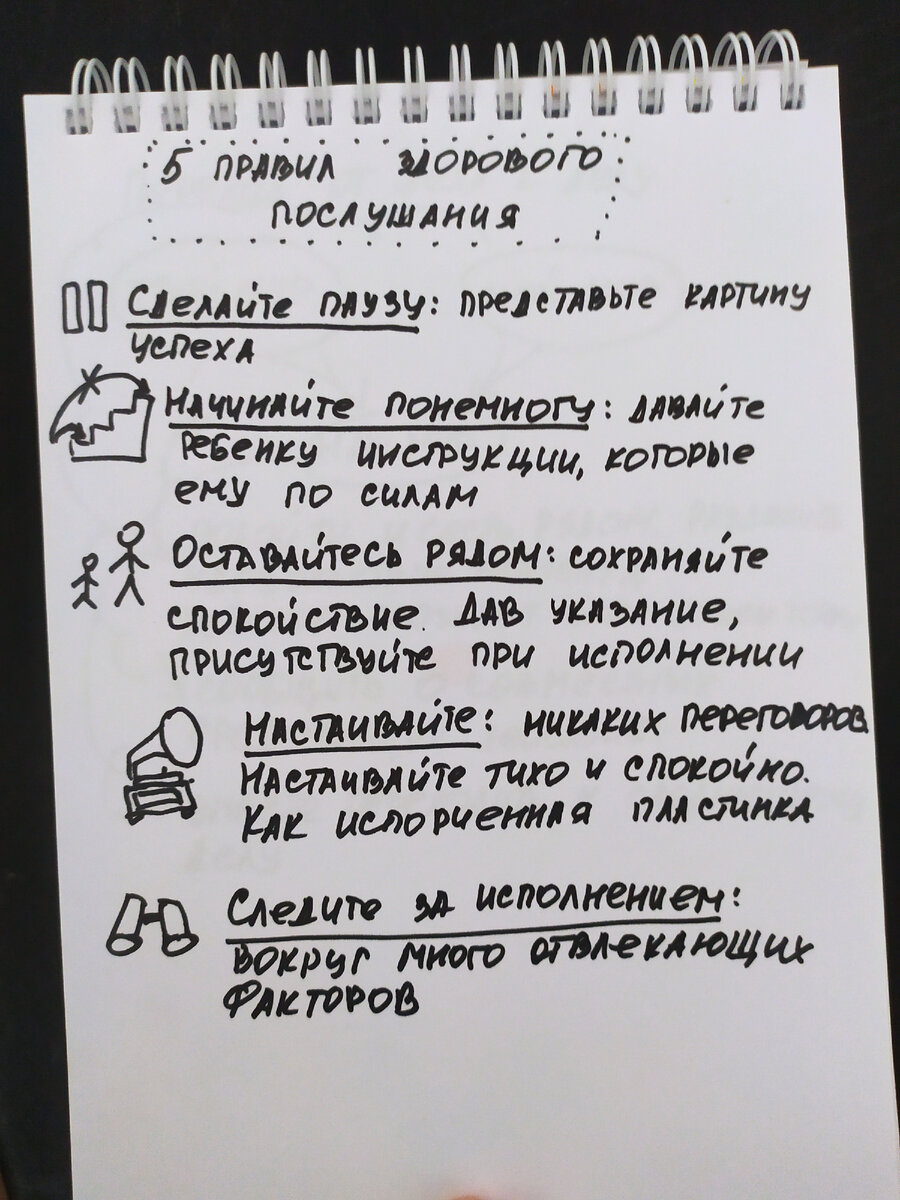 5 ПРАВИЛ ЗДОРОВОГО
ПОСЛУШАНИЯ
СДЕЛАЙТЕ ПАУЗУ: ПРЕДСТАВЬТЕ КАРТИНУ
УСПЕХА
НАЧИНАЙТЕ ПОНЕМНОГУ: ДАВАЙТЕ
РЕБЕНКУ ИНСТРУКЦИИ, КОТОРЫЕ
ЕМУ ПО СИЛАМ
ОСТАВАЙТЕСЬ РЯДОМ: СОХРАНЯЙТЕ
СПОКОЙСТВИЕ. ДАВ УКАЗАНИЕ,
ПРИСУТСТВУЙТЕ ПРИ ИСПОЛНЕНИИ
НАСТАИВАЙТЕ: НИКАКИХ ПЕРЕГОВОРОВ
НАСТАИВАЙТЕ ТИХО И СПОКОЙНО.
КАК ИСПОРЧЕННАЯ ПЛАСТИНКА
СЛЕДИТЕ ЗА ИСПОЛНЕНИЕМ:
ВОКРУГ МНОГО ОТВЛЕКАЮЩИХ
ФАКТОРОВ